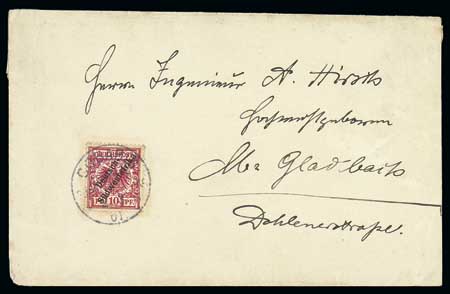 Herrn Ingenieur A. Hirsch
Hochwohlgeboren
M. Gladbach
Dahlenerstraße.
10
PF
01